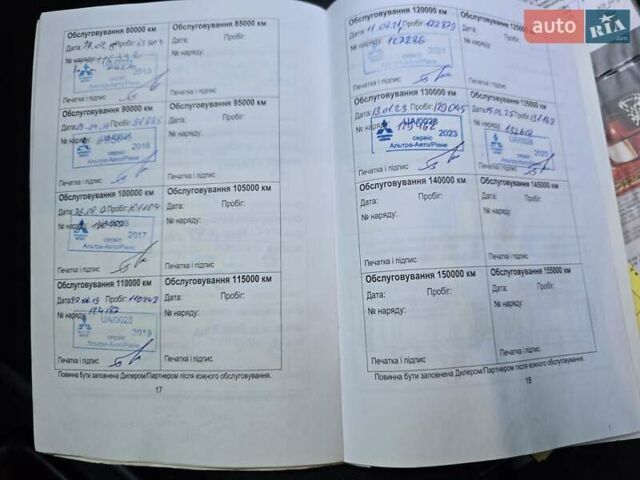 Обслуговування 80000 км
Дата: Пробіг:
№ наряду:
сервіс
Альтра-Авто/Рівне
Печатка і підпис
Обслуговування 85000 км
Дата: Пробіг:
№ наряду:
Печатка і підпис
Обслуговування 90000 км
Дата: Пробіг:
№ наряду:
2016
сервіс
Альтра-Авто/Рівне
Печатка і підпис
Обслуговування 95000 км
Дата: Пробіг:
№ наряду:
Печатка і підпис
Обслуговування 100000 км
Дата: Пробіг: 101104
№ наряду:
сервіс 2017
Альтра-Авто/Рівне
Печатка і підпис
Обслуговування 105000 км
Дата: Пробіг:
№ наряду:
Печатка і підпис
Обслуговування 110000 км
Дата: Пробіг: 110242
№ наряду: 124187
UA/0028
2019
сервіс
Альтра-Авто/Рівне
Печатка і підпис
Обслуговування 115000 км
Дата: Пробіг:
№ наряду:
Печатка і підпис
Повинна бути заповнена Дилером/Партнером після кожного обслуговування.
17
Обслуговування 120000 км
Дата: Пробіг: 122879
№ наряду: 127286
2021
Печатка і підпис
Дата: Пробіг:
№ наряду:
Печатка і підпис
Обслуговування 130000 км
Дата: 13.01.23 Пробіг: 129045
№ наряду:
UA/0028
2023
сервіс
Альтра-Авто/Рівне
Печатка і підпис
Обслуговування 135000 км
Дата: Пробіг:
№ наряду: 132612
UA/0028
2025
сервіс
Альтра-Авто/Рівне
Печатка і підпис
Обслуговування 140000 км
Дата: Пробіг:
№ наряду:
Печатка і підпис
Обслуговування 145000 км
Дата: Пробіг:
№ наряду:
Печатка і підпис
Обслуговування 150000 км
Дата: Пробіг:
№ наряду:
Печатка і підпис
Обслуговування 155000 км
Дата: Пробіг:
№ наряду:
Печатка і підпис
Повинна бути заповнена Дилером/Партнером після кожного обслуговування.
18
auto RIA.com